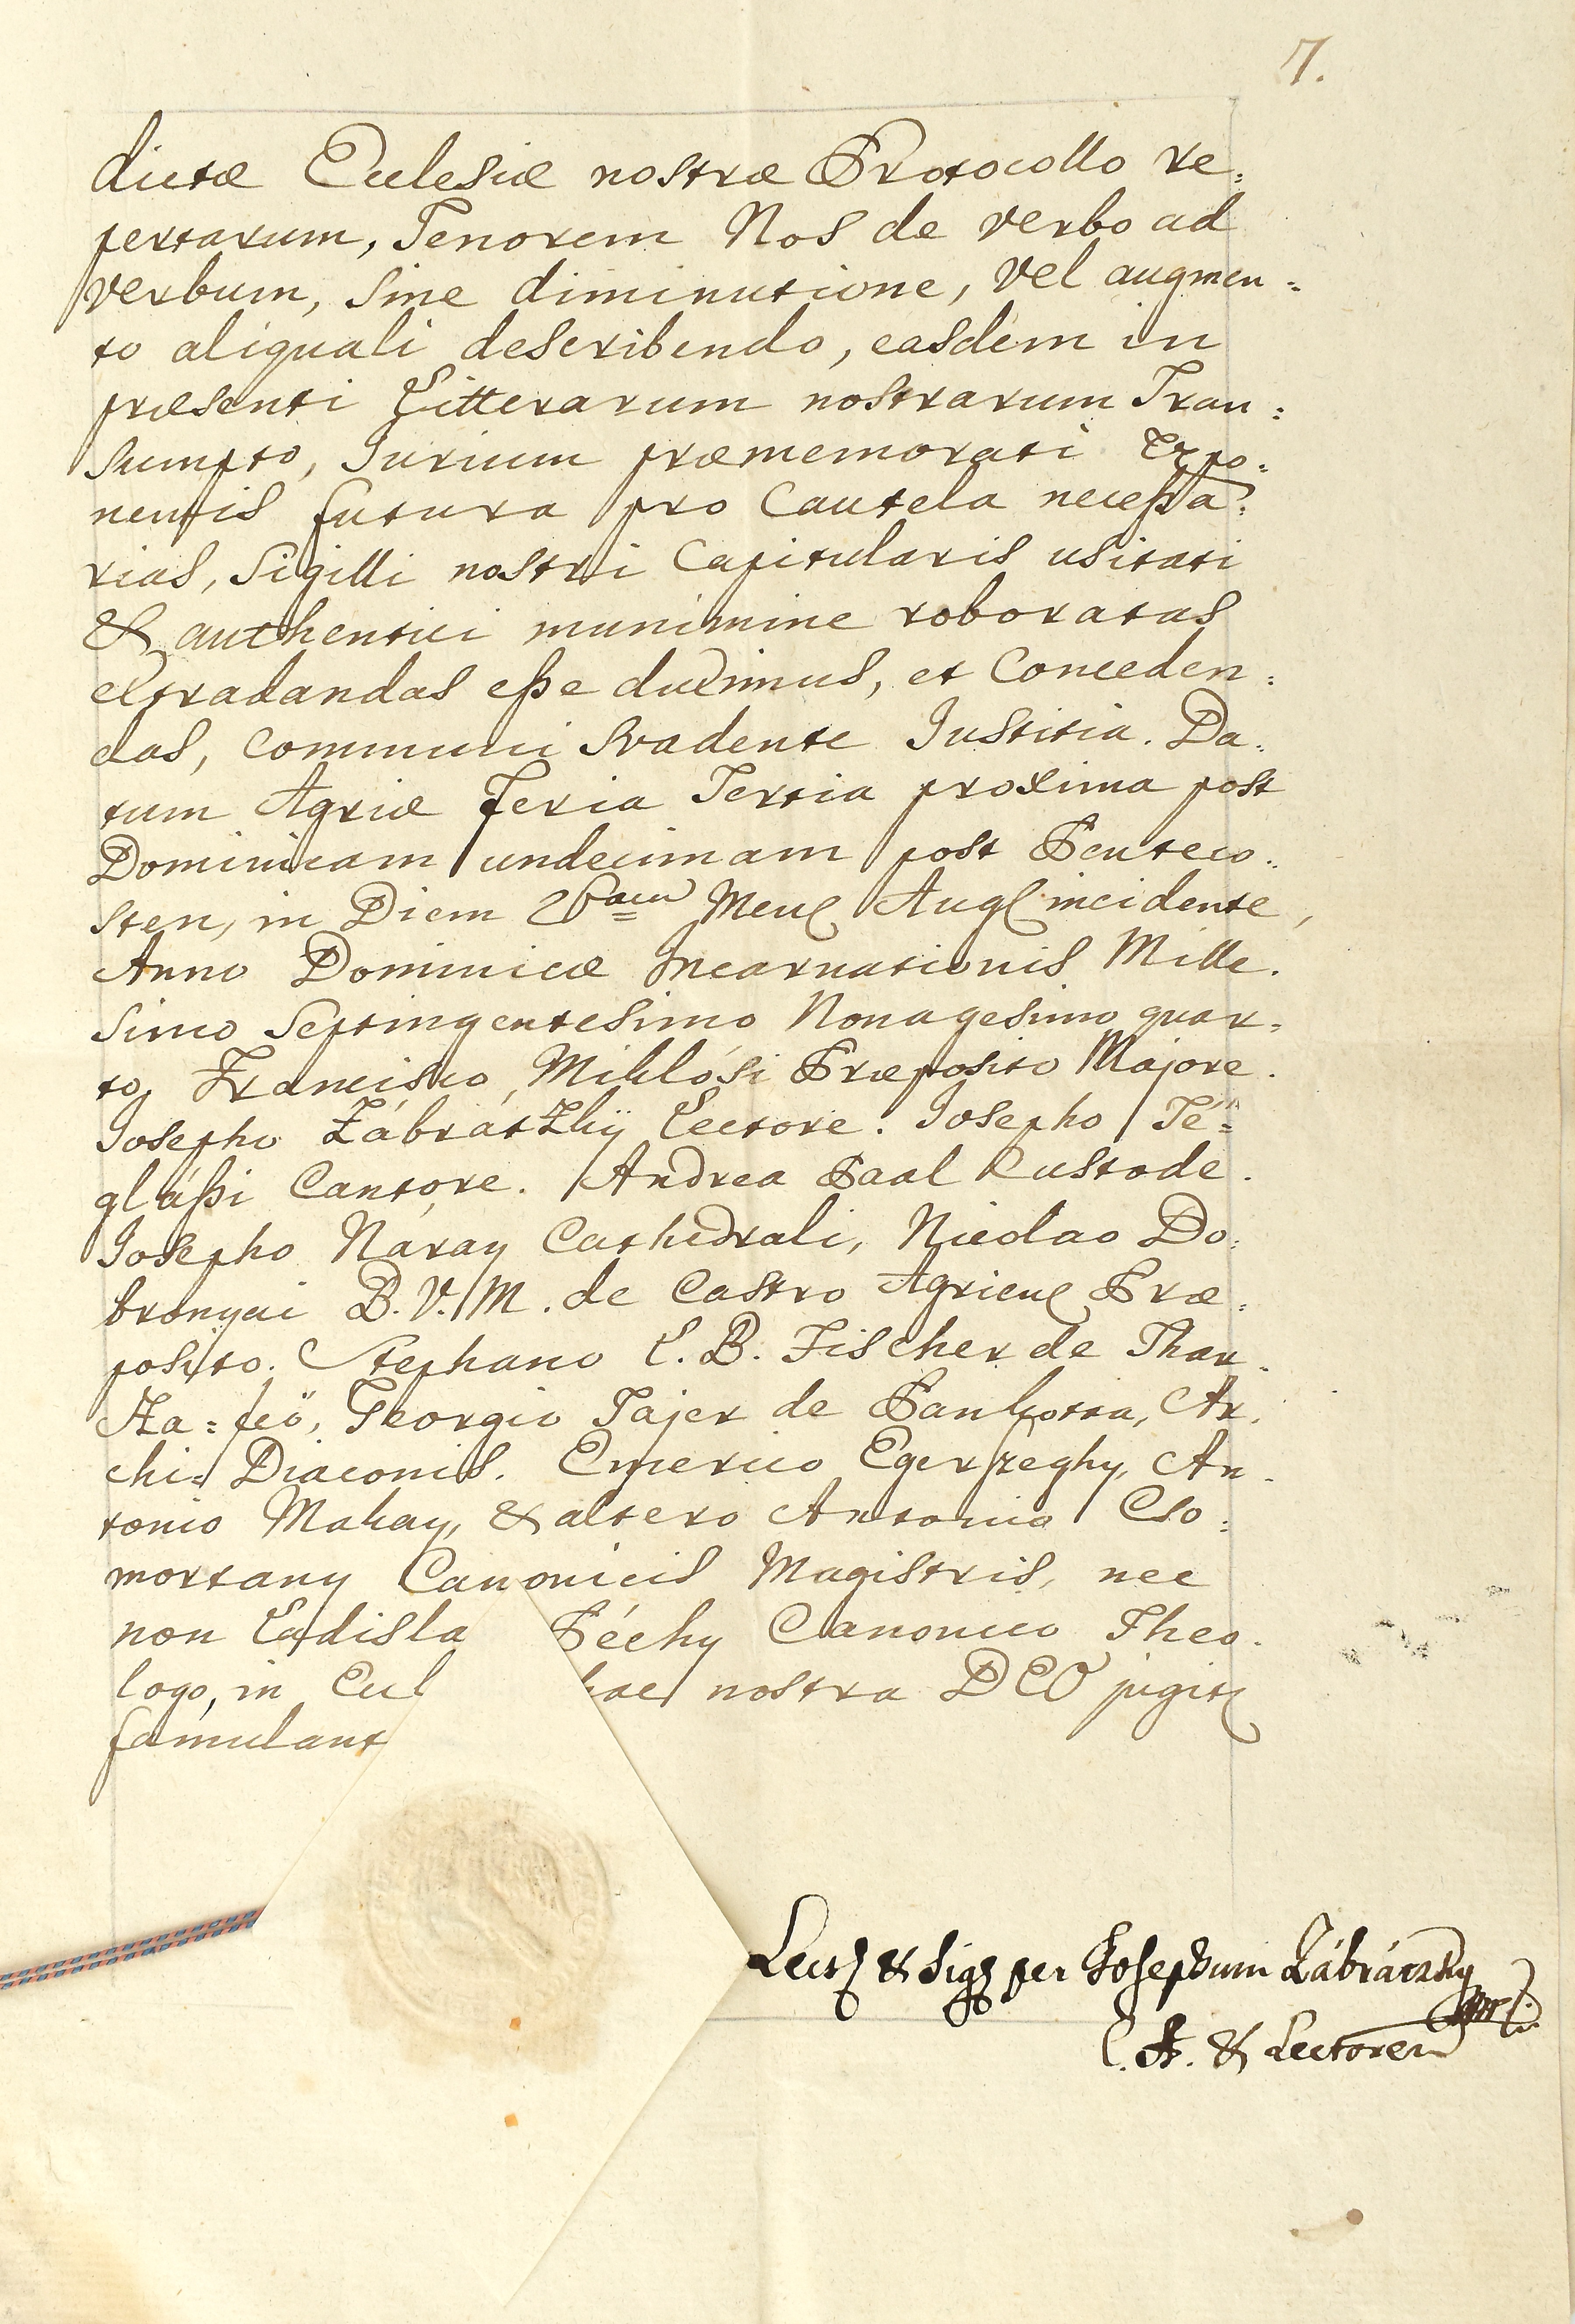 7.
dictæ Ecclesiæ nostræ Protocollo re=
pertarum, Tenorem Nos de verbo ad
verbum, sine diminutione, vel augmen=
to aliquali describendo, easdem in
præsenti Litterarum nostrarum Tran=
sumpto, Jurium præmemorati Expo=
nentis futura pro Cautela necessa=
rias, Sigilli nostri Capitularis usitati
& authentici munimine roboratas
extradandas esse duximus, et Conceden=
das, Communi svadente Justitia. Da=
tum Agriæ Feria Tertia proxima post
Dominicam undecimam post Penteco=
sten, in Diem 26am Mens Aug incidente,
Anno Dominicæ Incarnationis Mille=
simo Septingentesimo Nonagesimo quar=
to, Francisco Miklósi Præposito Majore.
Josepho Zábrátzky Lectore. Josepho Té=
glássi Cantore. Andrea Paal Custode.
Josepho Náray Cathedrali, Nicolao Do=
bronyai B. V. M. de Castro Agriens Præ=
posito. Stephano L. B. Fischer de Thar=
Ka=feö, Georgio Tajer de Pankotta, Ar=
chi=Diaconis. Emerico Egerszeghy, An=
tonio Makay, & altero Antonio Cso=
mortany Canonicis Magistris, nec
non Ladisla Péchy Canonico Theo=
logo, in Eccl hac nostra DEO jugit
famulant
Lect & Sig per Josephum Zábráczky mpr
C. A. & Lectorem